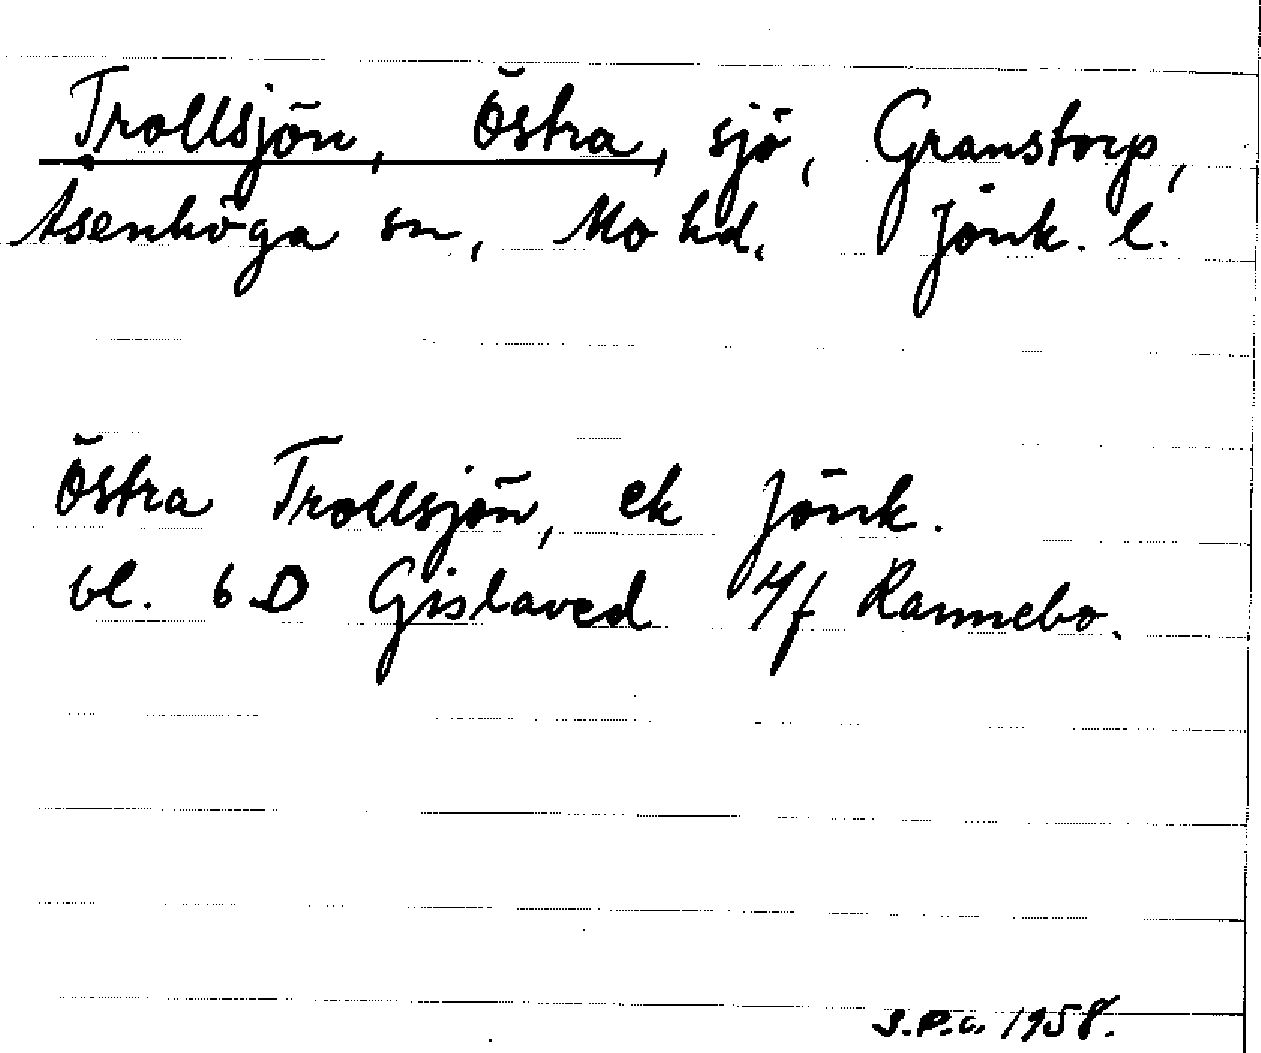 Trollsjön, Östra, sjö, Granstorp,
Åsenhöga sn, Mo hd. Jönk. l.
Östra Trollsjön, ek Jönk.
bl. 6 D Gislaved 4/f Rannebo.
S.P.a. 1958.